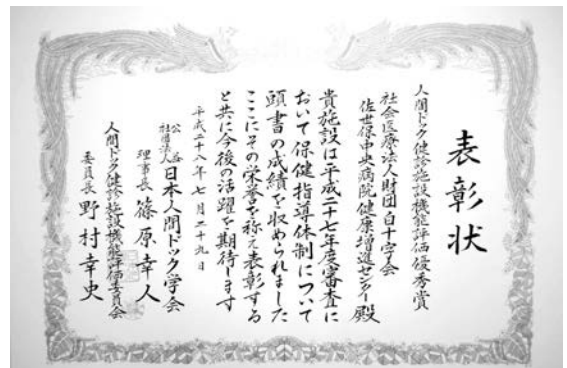 表彰状
人間ドック健診施設機能評価優秀賞
社会医療法人財団白十字会
佐世保中央病院健康増進センター殿
貴施設は平成二十七年度審査に
おいて保健指導体制について
頭書の成績を収められました
ここにその栄誉を称え表彰する
と共に今後の活躍を期待します
平成二十八年七月二十九日
公益社団法人日本人間ドック学会
理事長篠原幸人
人間ドック健診施設機能評価委員会
委員長野村幸史